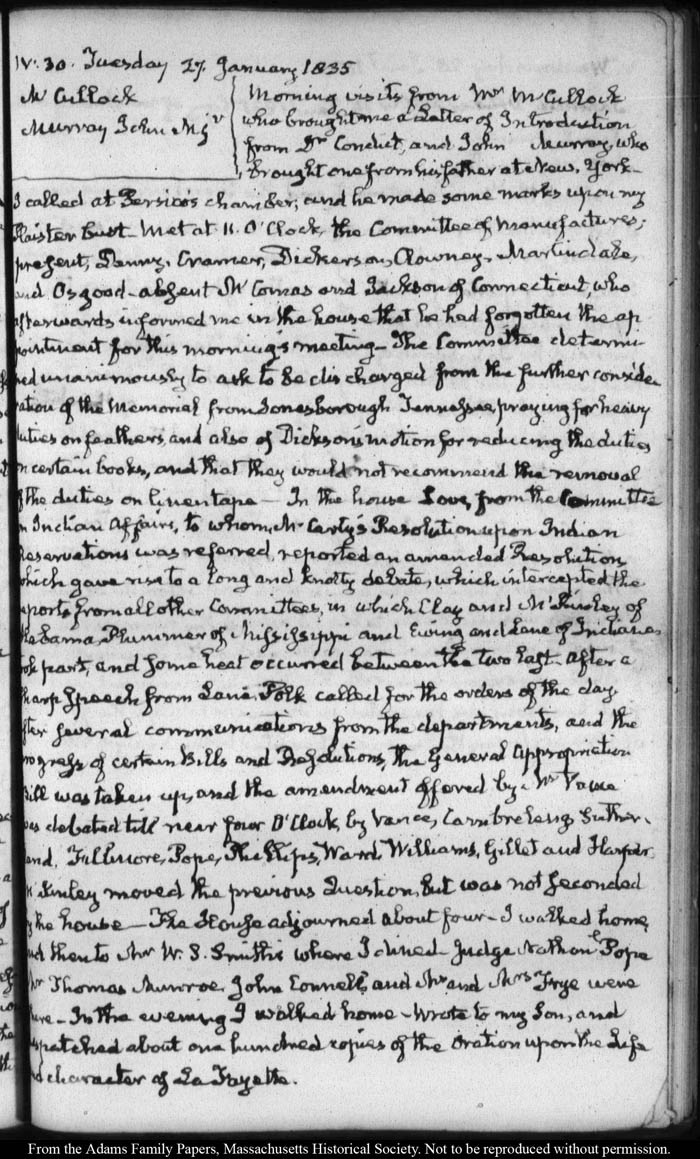 IV. 30. Tuesday 27. January 1835
Mc Cullock
Murray John Mjr
Morning visits from Mr McCullock
who brought me a Letter of Introduction
from Dr Condict, and John Murray, who
brought one from his father at New-York-
I called at Persico's chamber; and he made some marks upon my
Plaister Bust. Met at 11. O'Clock, the Committee of Manufactures;
present, Denny, Cramer, Dickerson, Clowney, Martindale,
and Osgood- absent McComas and Jackson of Connecticut, who
afterwards informed me in the house that he had forgotten the ap
pointment for this morning's meeting- The Committee determi
ned unanimously to ask to be discharged from the further conside
ration of the Memorial from Jonesborough Tennessee, praying for heavy
duties on feathers, and also of Dickson's motion for reducing the duties
on certain books, and that they would not recommend the removal
of the duties on linen tape- In the house Love, from the Committee
on Indian Affairs, to whom Mr Carty's Resolution upon Indian
Reservations was referred, reported an amended Resolution,
which gave rise to a long and knotty debate, which intercepted the
reports from all other Committees, in which Clay and McKinley of
Alabama, Plummer of Mississippi and Ewing and Lane of Indiana,
took part, and some heat occurred between the two last. After a
sharp speech from Lane, Polk called for the orders of the day
after several communications from the departments, and the
progress of certain Bills and Resolutions, the General Appropriation
Bill was taken up, and the amendment offered by Mr Vance
was debated till near four O'Clock, by Vance, Cambreleng, Suther-
land, Fillmore, Pope, Phillips, Ward, Williams, Gillet and Harper
McKinley moved the previous Question, but was not seconded
by the house- The House adjourned about four- I walked home,
and then to Mr W. S. Smith's where I dined- Judge Nathanl Pope
Mr Thomas Munroe, John Connell, and Mr and Mrs Frye were
there- In the evening I walked home- Wrote to my Son, and
despatched about one hundred copies of the Oration upon the Life
and character of La Fayette.
From the Adams Family Papers, Massachusetts Historical Society. Not to be reproduced without permission.